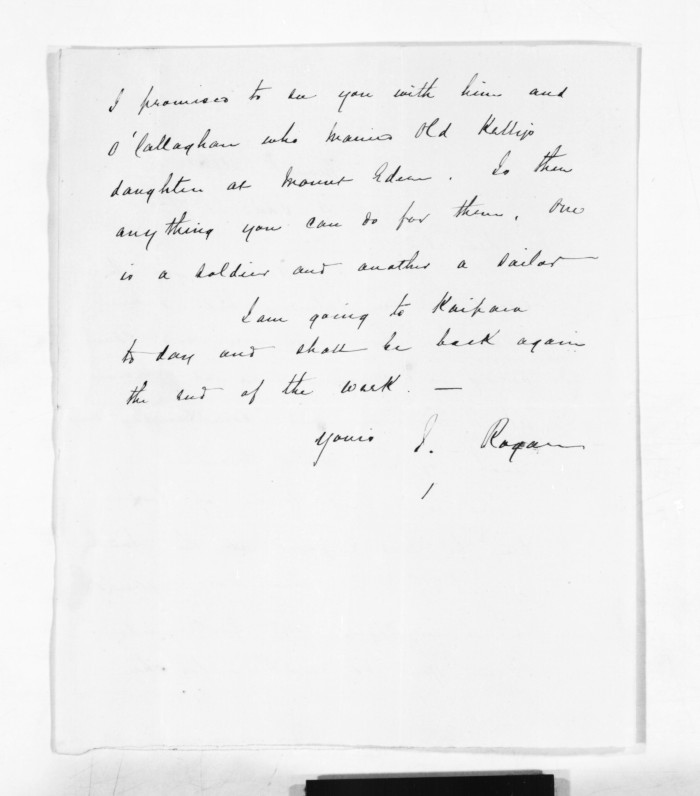 I promised to see you with him and
O'Callaghan who marries Old Kelly's
daughter at Mount Eden. Is there
anything you can do for them. One
is a soldier and another a sailor
I am going to Kaipara
to day and shall be back again
the end of the week. —
Yours J. Rogan